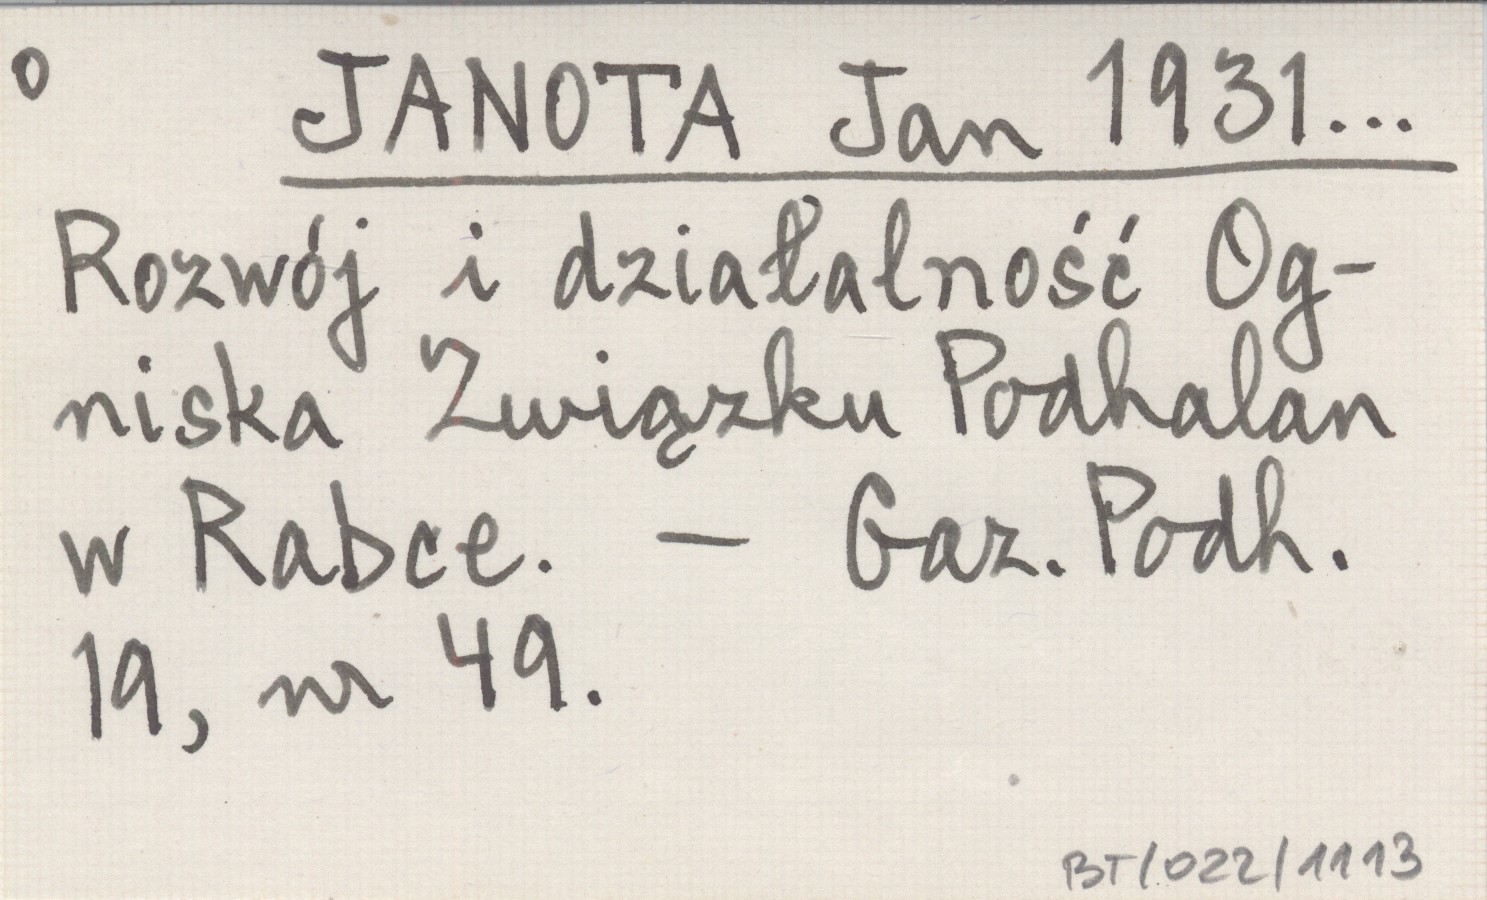 o JANOTA Jan 1931...
Rozwój i działalność Og-
niska Związku Podhalan
w Rabce. — Gaz. Podh.
19, nr 49.
BT/022/1113